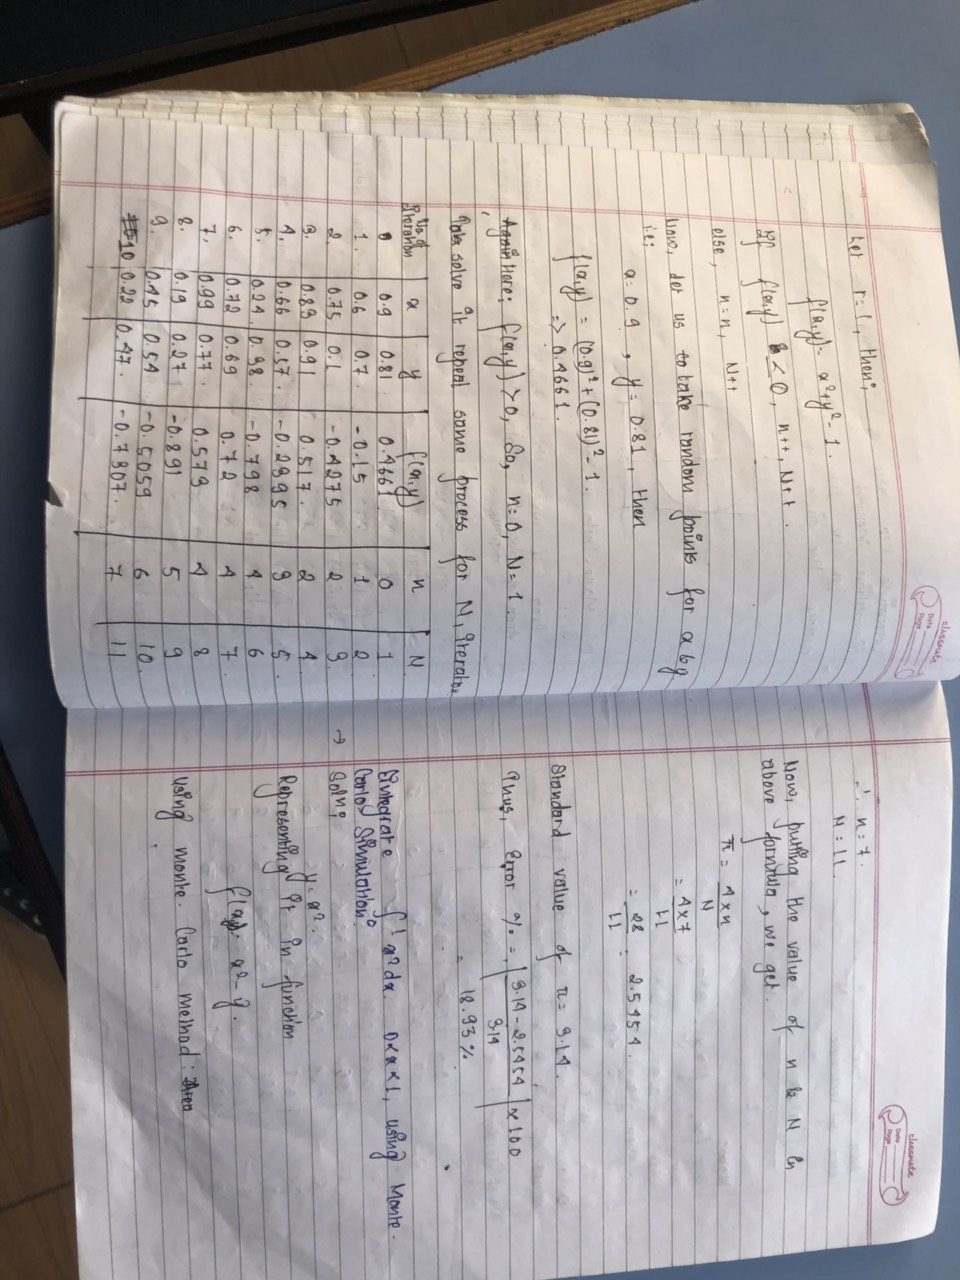 classmate
Date
Page
Let r = 1, then;
f(x,y) = x²+y²-1.
If f(x,y) < 0, n++, N++.
else, n=n, N++
Now, let us to take random points for x & y
i.e;
x = 0.9, y = 0.81, then
f(x,y) = (0.9)² + (0.81)² - 1.
=> 0.4661.
Here; f(x,y) > 0, So, n=0, N=1
solve it repeat same process for N, iteration
No. of Iteration x y f(x,y) n N
0 0.9 0.81 0.4661 0 1
1. 0.6 0.7 -0.15 1 2
2. 0.75 0.1 -0.4275 2 3
3. 0.89 0.91 0.517. 2 4
4. 0.66 0.57. -0.2995 3 5.
5. 0.24. 0.98. -0.798 4 6
6. 0.72 0.69 0.72 4 7
7. 0.99 0.77. 0.579 4 8
8. 0.19 0.27 -0.891 5 9
9. 0.45 0.54 -0.5059 6 10.
10 0.22 0.47. -0.7307. 7 11
classmate
Date
Page
∴ n = 7.
N = 11.
Now, putting the value of n & N in
above formula, we get.
π = 4×n / N
= 4×7 / 11
= 28 / 11 = 2.5454.
Standard value of π = 3.14.
Thus, Error % = |3.14 - 2.5454 / 3.14| × 100
= 18.93%.
Integrate ∫¹ x² dx. 0<x<1, using Monte-
Carlo Simulation:
→ Soln;
y = x².
Representing it in function
f(x,y) = x² - y.
Using monte. Carlo method: